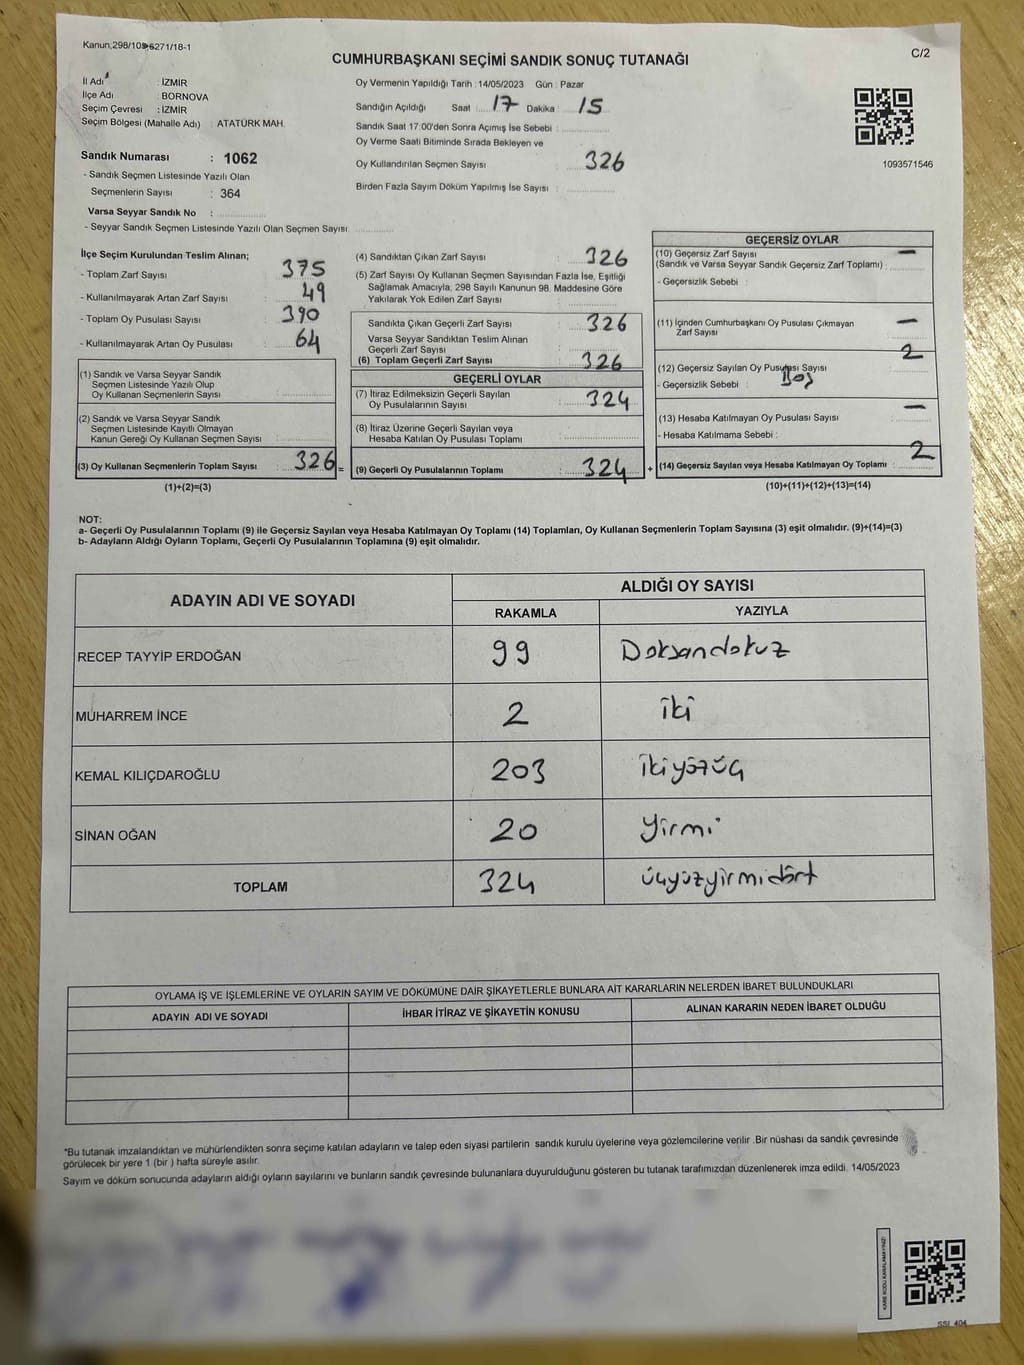 Kanun,298/105-6271/18-1
C/2
CUMHURBAŞKANI SEÇİMİ SANDIK SONUÇ TUTANAĞI
İl Adı : İZMİR
İlçe Adı : BORNOVA
Seçim Çevresi : İZMİR
Seçim Bölgesi (Mahalle Adı) : ATATÜRK MAH.
Sandık Numarası : 1062
- Sandık Seçmen Listesinde Yazılı Olan
Seçmenlerin Sayısı : 364
Varsa Seyyar Sandık No :
- Seyyar Sandık Seçmen Listesinde Yazılı Olan Seçmen Sayısı:
Oy Vermenin Yapıldığı Tarih : 14/05/2023 Gün : Pazar
Sandığın Açıldığı Saat 17 Dakika : 15
Sandık Saat 17:00'den Sonra Açımış İse Sebebi :
Oy Verme Saati Bitiminde Sırada Bekleyen ve
Oy Kullandırılan Seçmen Sayısı : 326
Birden Fazla Sayım Döküm Yapılmış İse Sayısı :
1093571546
İlçe Seçim Kurulundan Teslim Alınan;
- Toplam Zarf Sayısı : 375
- Kullanılmayarak Artan Zarf Sayısı : 49
- Toplam Oy Pusulası Sayısı : 390
- Kullanılmayarak Artan Oy Pusulası : 64
(1) Sandık ve Varsa Seyyar Sandık
Seçmen Listesinde Yazılı Olup
Oy Kullanan Seçmenlerin Sayısı :
(2) Sandık ve Varsa Seyyar Sandık
Seçmen Listesinde Kayıtlı Olmayan
Kanun Gereği Oy Kullanan Seçmen Sayısı :
(3) Oy Kullanan Seçmenlerin Toplam Sayısı : 326 =
(1)+(2)=(3)
(4) Sandıktan Çıkan Zarf Sayısı : 326
(5) Zarf Sayısı Oy Kullanan Seçmen Sayısından Fazla İse, Eşitliği
Sağlamak Amacıyla, 298 Sayılı Kanunun 98. Maddesine Göre
Yakılarak Yok Edilen Zarf Sayısı :
Sandıkta Çıkan Geçerli Zarf Sayısı : 326
Varsa Seyyar Sandıktan Teslim Alınan
Geçerli Zarf Sayısı :
(6) Toplam Geçerli Zarf Sayısı : 326
GEÇERLİ OYLAR
(7) İtiraz Edilmeksizin Geçerli Sayılan
Oy Pusulalarının Sayısı : 324
(8) İtiraz Üzerine Geçerli Sayılan veya
Hesaba Katılan Oy Pusulası Toplamı :
(9) Geçerli Oy Pusulalarının Toplamı : 324 +
GEÇERSİZ OYLAR
(10) Geçersiz Zarf Sayısı –
(Sandık ve Varsa Seyyar Sandık Geçersiz Zarf Toplamı) :
- Geçersizlik Sebebi :
(11) İçinden Cumhurbaşkanı Oy Pusulası Çıkmayan –
Zarf Sayısı
(12) Geçersiz Sayılan Oy Pusulası Sayısı 2
- Geçersizlik Sebebi : Boş
(13) Hesaba Katılmayan Oy Pusulası Sayısı : –
- Hesaba Katılmama Sebebi :
(14) Geçersiz Sayılan veya Hesaba Katılmayan Oy Toplamı : 2
(10)+(11)+(12)+(13)=(14)
NOT:
a- Geçerli Oy Pusulalarının Toplamı (9) ile Geçersiz Sayılan veya Hesaba Katılmayan Oy Toplamı (14) Toplamları, Oy Kullanan Seçmenlerin Toplam Sayısına (3) eşit olmalıdır. (9)+(14)=(3)
b- Adayların Aldığı Oyların Toplamı, Geçerli Oy Pusulalarının Toplamına (9) eşit olmalıdır.
ADAYIN ADI VE SOYADI
ALDIĞI OY SAYISI
RAKAMLA YAZIYLA
RECEP TAYYİP ERDOĞAN 99 Doksandokuz
MUHARREM İNCE 2 iki
KEMAL KILIÇDAROĞLU 203 ikiyüzüç
SİNAN OĞAN 20 Yirmi
TOPLAM 324 üçyüzyirmidört
OYLAMA İŞ VE İŞLEMLERİNE VE OYLARIN SAYIM VE DÖKÜMÜNE DAİR ŞİKAYETLERLE BUNLARA AİT KARARLARIN NELERDEN İBARET BULUNDUKLARI
ADAYIN ADI VE SOYADI İHBAR İTİRAZ VE ŞİKAYETİN KONUSU ALINAN KARARIN NEDEN İBARET OLDUĞU
*Bu tutanak imzalandıktan ve mühürlendikten sonra seçime katılan adayların ve talep eden siyasi partilerin sandık kurulu üyelerine veya gözlemcilerine verilir .Bir nüshası da sandık çevresinde
görülecek bir yere 1 (bir ) hafta süreyle asılır.
Sayım ve döküm sonucunda adayların aldığı oyların sayılarını ve bunların sandık çevresinde bulunanlara duyurulduğunu gösteren bu tutanak tarafımızdan düzenlenerek imza edildi. 14/05/2023
KARE KODU KARALAMAYINIZ!
SSI_404